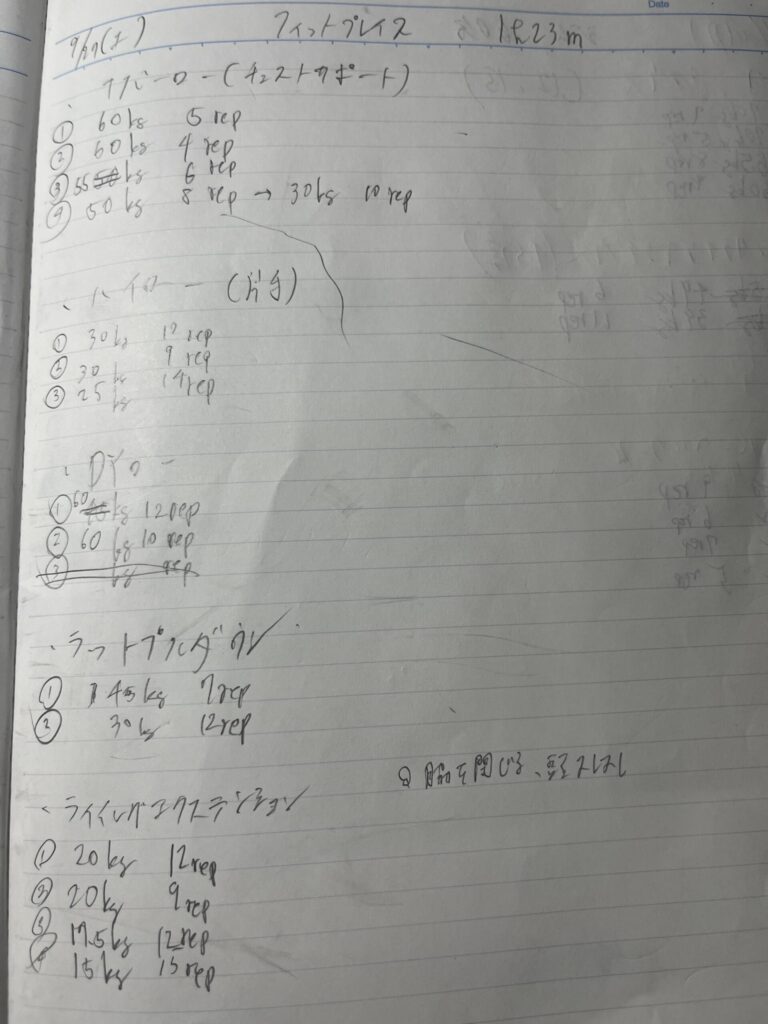 Date
9/27(土) フィットプレイス 1h23m
・Tバーロー(チェストサポート)
① 60kg 5rep
② 60kg 4rep
③ 55kg 6rep
④ 50kg 8rep → 30kg 10rep
・ハイロー(片手)
① 30kg 10rep
② 30 9rep
③ 25kg 14rep
・DYロー
① 60kg 12rep
② 60kg 10rep
③ kg rep
・ラットプルダウン
① 45kg 7rep
② 30kg 12rep
脇を閉じる、
・ライイングエクステンション
① 20kg 12rep
② 20kg 9rep
③ 17.5kg 12rep
④ 15kg 15rep